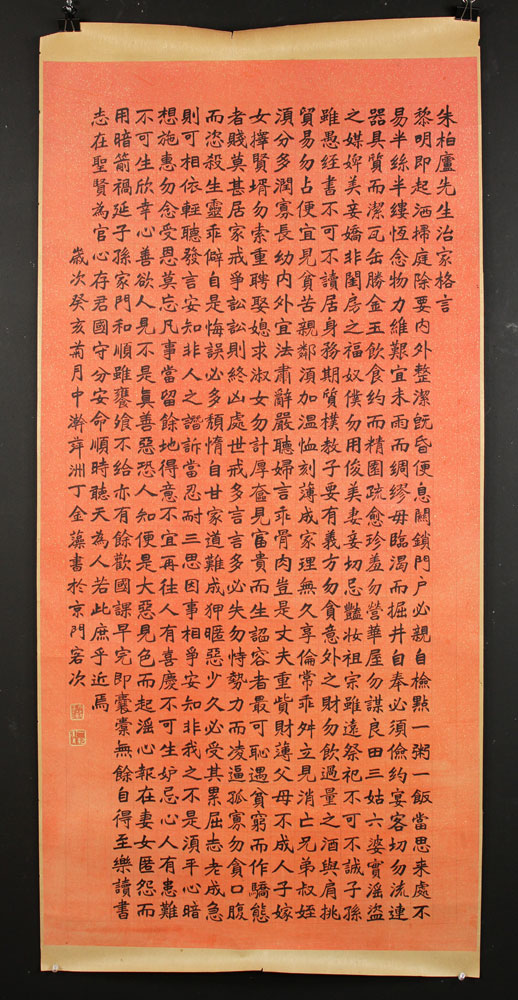 朱柏廬先生治家格言
黎明即起洒掃庭除要内外整潔旣昏便息關鎖門户必親自檢點一粥一飯當思来處不
易半絲半縷恆念物力維艱宜未雨而綢繆毋臨渴而掘井自奉必須儉約宴客切勿流連
器具質而潔瓦缶勝金玉飲食約而精園蔬愈珍羞勿營華屋勿謀良田三姑六婆實滛盜
之媒婢美妾嬌非閨房之福奴僕勿用俊美妻妾切忌豔妝祖宗雖遠祭祀不可不誠子孫
雖愚經書不可不讀居身務期質樸教子要有義方勿貪意外之財勿飲過量之酒與肩挑
貿易勿占便宜見貧苦親鄰須加温恤刻薄成家理無久享倫常乖舛立見消亡兄弟叔姪
須分多潤寡長幼内外宜法肅辭嚴聽婦言乖骨肉豈是丈夫重貲財薄父母不成人子嫁
女擇賢壻勿索重聘娶媳求淑女勿計厚奩見富貴而生諂容者最可恥遇貧窮而作驕態
者賤莫甚居家戒爭訟訟則終凶處世戒多言言多必失勿恃勢力而凌逼孤寡勿貪口腹
而恣殺生靈乖僻自是悔誤必多頹惰自甘家道難成狎暱惡少久必受其累屈志老成急
則可相依輕聽發言安知非人之譖訴當忍耐三思因事相爭安知非我之不是須平心暗
想施惠勿念受恩莫忘凡事當留餘地得意不宜再往人有喜慶不可生妒忌心人有患難
不可生欣幸心善欲人見不是真善惡恐人知便是大惡見色而起滛心報在妻女匿怨而
用暗箭禍延子孫家門和順雖饔飧不給亦有餘歡國課早完即囊橐無餘自得至樂讀書
志在聖賢為官心存君國守分安命順時聽天為人若此庶乎近焉
歲次癸亥菊月中澣萍洲丁金蕖書於京門客次